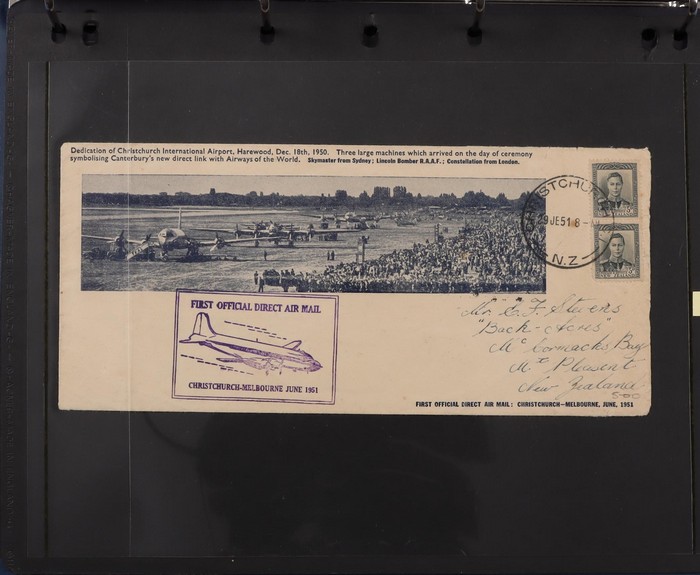 Dedication of Christchurch International Airport, Harewood, Dec. 18th, 1950. Three large machines which arrived on the day of ceremony
symbolising Canterbury's new direct link with Airways of the World. Skymaster from Sydney; Lincoln Bomber R.A.A.F.; Constellation from London.
CHRISTCHURCH
29 JE 51 8 -
N.Z
FIRST OFFICIAL DIRECT AIR MAIL
CHRISTCHURCH-MELBOURNE JUNE 1951
Mr. C. F. Stevens
"Bach-Acres"
McCormacks Bay
Mt Pleasent
New Zealand
FIRST OFFICIAL DIRECT AIR MAIL: CHRISTCHURCH—MELBOURNE, JUNE, 1951